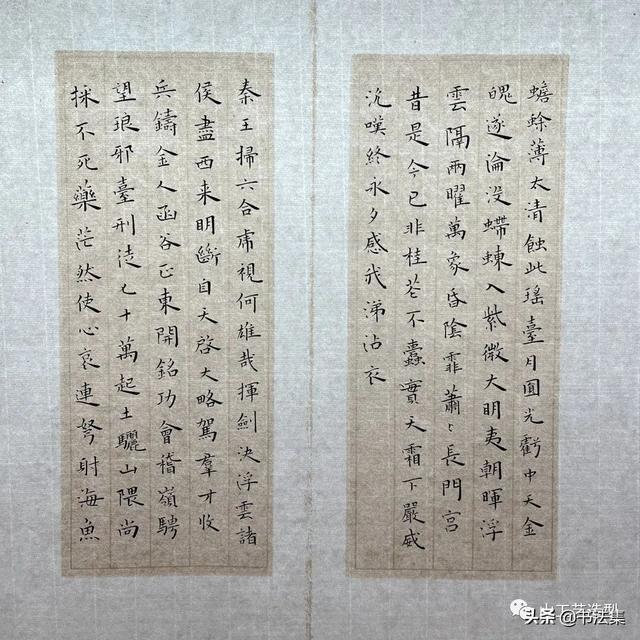 蟾蜍薄太清蝕此瑤臺月圓光虧中天金
魄遂淪没螮蝀入紫微大明夷朝暉浮
雲隔兩曜萬象昏陰霏蕭〻長門宮
昔是今已非桂花不蠹實天霜下嚴威
沉嘆終永夕感我涕沾衣
秦王掃六合虎視何雄哉揮劍決浮雲諸
侯盡西来明斷自天啓大略駕羣才收
兵鑄金人函谷正東開銘功會稽嶺騁
望琅邪臺刑徒七十萬起土驪山隈尚
採不死藥茫然使心哀連弩射海魚
头条 @书法集